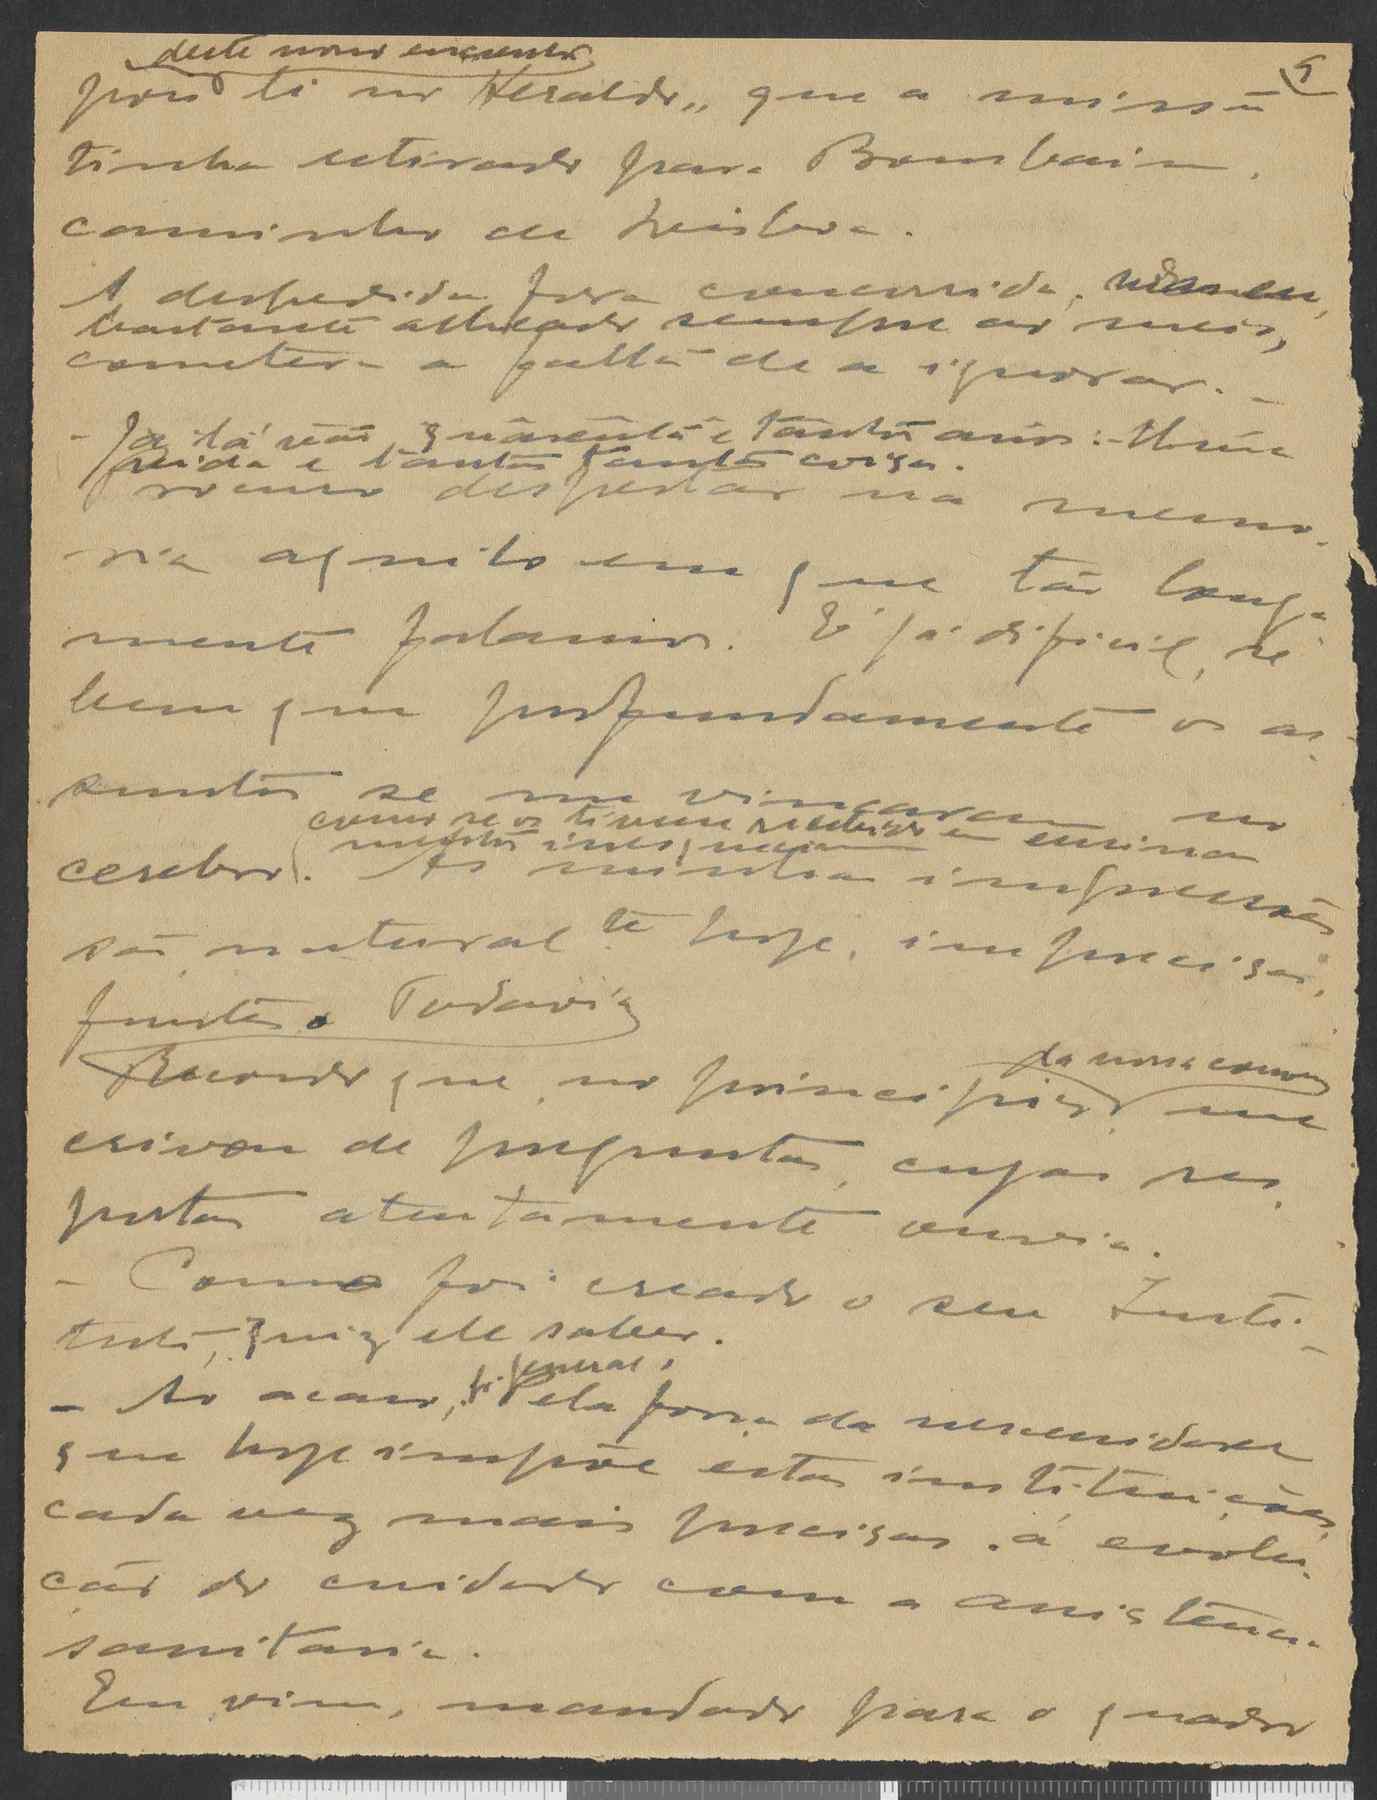 deste nosso encontro
5
pois li no Heraldo,, que a missão
tinha retirado para Bombaim,
caminho de Lisboa.
A despedida fora concorrida,
bastante alheado sempre ao meio,
cometera a falta de a ignorar. -
- Já lá vão quarenta e tantos anos: - Uma
vida e tantas, tantas coisas.
Procuro despertar na memo-
ria aquilo em que tão longa
mente falamos. E' já dificil, se
bem que profundamente os as-
suntos se me vincaram no
como se os tivesse recebido em
cerebro. As minhas impressões
são, natural te hoje, imprecisas,
Todavia
Recordo que, no principio, me
da nossa conversa
crivou de preguntas, cujas res,
postas atentamente ouvia.
- Como foi creado o seu Insti-
tuto, quiz ele saber.
- Ao acaso, general, Pela força da necessidade
que hoje impõe estas instituições,
cada vez mais precisas á evolu-
ção do cuidado com a assistencia
sanitaria.
Eu vim, mandado para o quadro